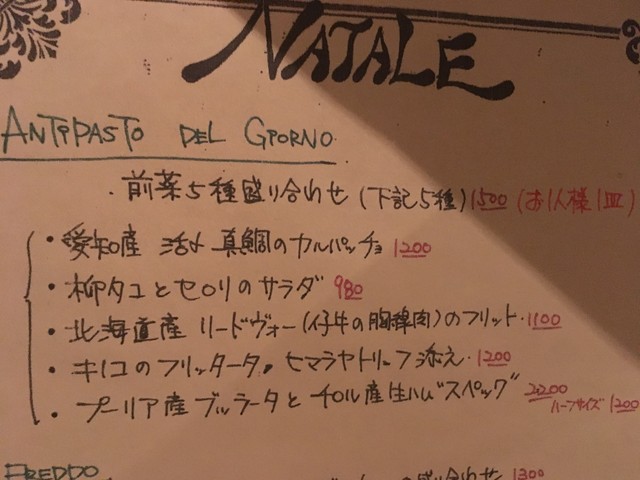 NATALE
ANTIPASTO DEL GIORNO
・前菜5種盛り合わせ (下記5種) 1500 (お1人様1皿)
・愛知産 活〆 真鯛のカルパッチョ 1200
・柳タコとセロリのサラダ 980
・北海道産 リードヴォー(仔牛の胸線肉)のフリット・1100
・キノコのフリッタータ。ヒマラヤトリーフ添え・1200
・プーリア産ブッラータとチロル産生ハム"スペック" 2200
ハーフサイズ 1200
FREDDO
の盛り合わせ 1300